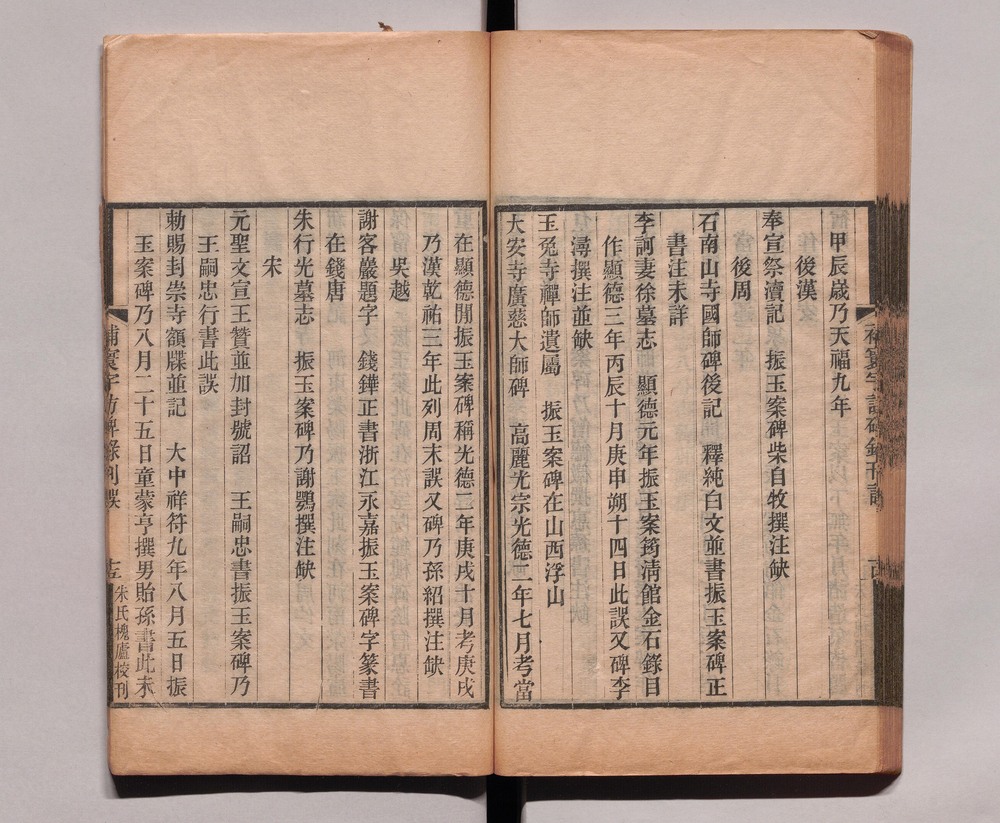 甲辰歲乃天福九年
後漢
奉宣祭瀆記　振玉案碑柴自牧撰注缺
後周
石南山寺國師碑後記　釋純白文並書振玉案碑正
書注未詳
李訶妻徐墓志　顯德元年振玉案筠清館金石錄目
作顯德三年丙辰十月庚申朔十四日此誤又碑李
潯撰注並缺
玉兎寺禪師遺屬　振玉案碑在山西浮山
大安寺廣慈大師碑　高麗光宗光德二年七月考當
補寰宇訪碑錄刊誤
在顯德閒振玉案碑稱光德二年庚戌十月考庚戌
乃漢乾祐三年此列周末誤又碑乃孫紹撰注缺
吳越
謝客巖題字　錢鏵正書浙江永嘉振玉案碑字篆書
在錢唐
朱行光墓志　振玉案碑乃謝鶚撰注缺
宋
元聖文宣王贊並加封號詔　王嗣忠書振玉案碑乃
王嗣忠行書此誤
勅賜封崇寺額牒並記　大中祥符九年八月五日振
玉案碑乃八月二十五日童蒙亨撰男貽孫書此未
補寰宇訪碑錄刊誤
朱氏槐廬校刊